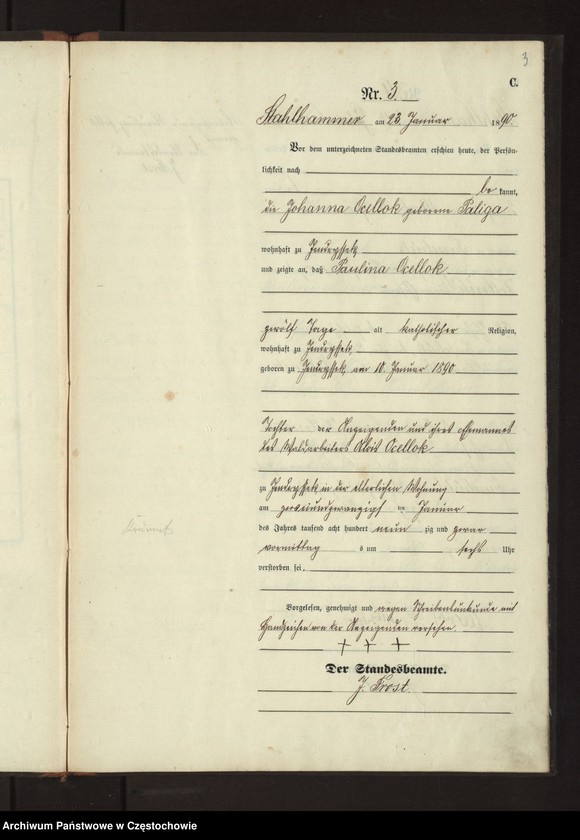 3
C.
Nr. 3.
Stahlhammer am 23. Januar 1890.
Vor dem unterzeichneten Standesbeamten erschien heute, der Persön-
lichkeit nach
be kannt,
die Johanna Ocellok geborene Paliga
wohnhaft zu Jendryssek
und zeigte an, daß Paulina Ocellok
zwölf Tage alt katholischer Religion,
wohnhaft zu Jendryssek
geboren zu Jendryssek, am 10. Januar 1890
Tochter der Anzeigenden und ihres Ehemannes
des Waldarbeiters Alois Ocellok
zu Jendryssek in der elterlichen Wohnung
am zweiundzwanzigst ten Januar
des Jahres tausend acht hundert neun zig und zwar
vormittag s um sechs Uhr
verstorben sei.
Vorgelesen, genehmigt und wegen Schreibensunkunde mit
Handzeichen von der Anzeigenden versehen.
+ + +
Der Standesbeamte.
J. Frost.
Archiwum Państwowe w Częstochowie